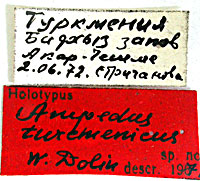 Туркмения
Бадхыз запов
Акар-Чешме
2.06.72. С Пучкова
Holotypus
Ampedus
turcmenicus
W. Dolin
sp. no
descr. 198